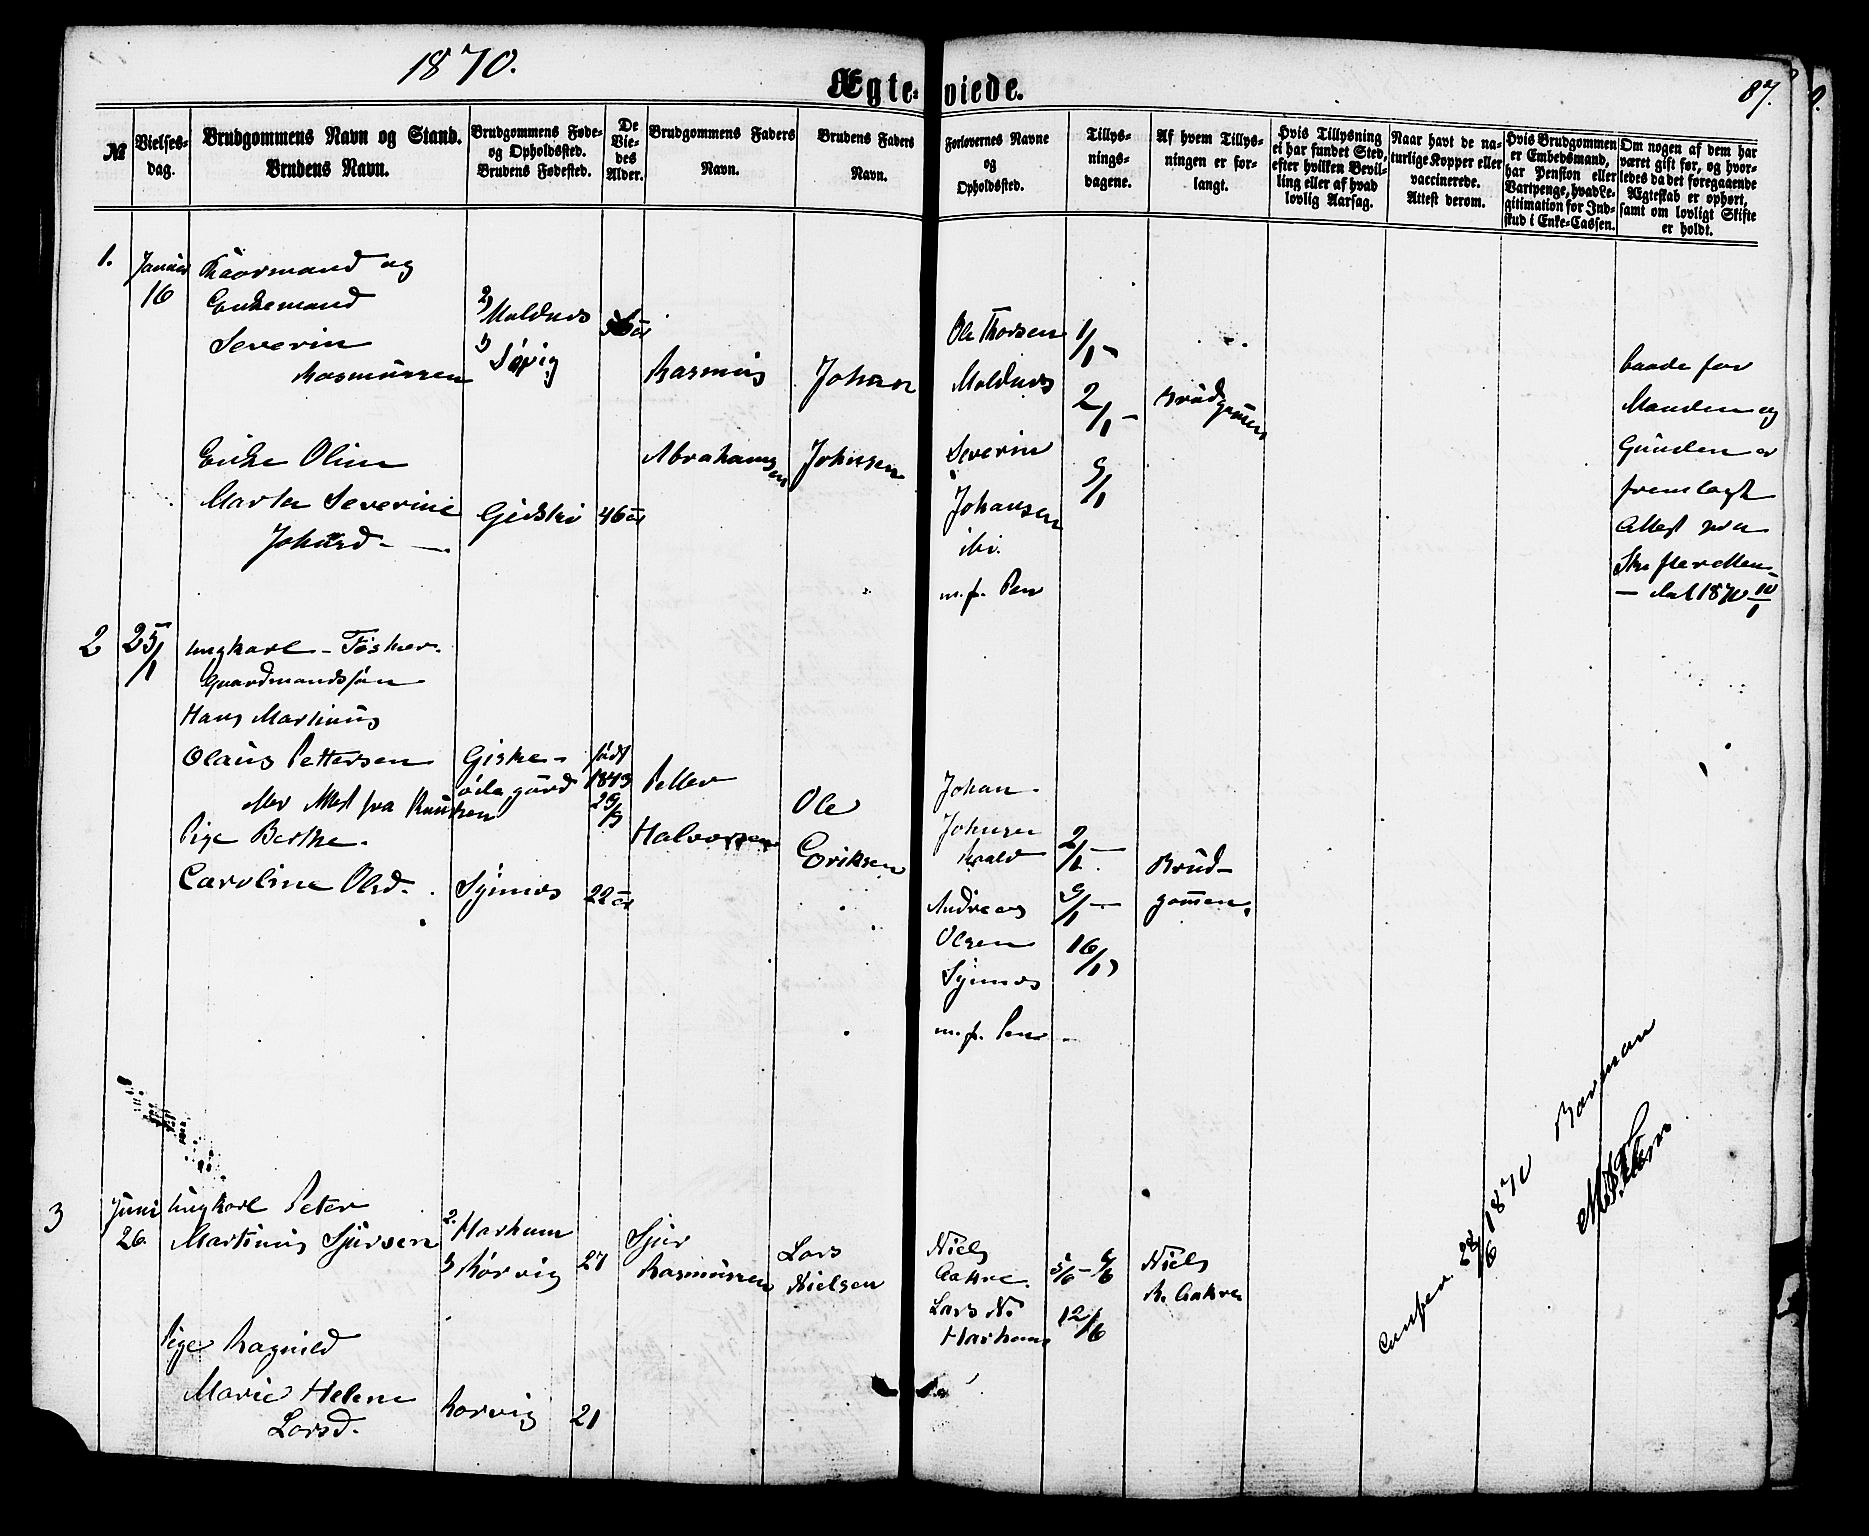 1870.
Ægte-viede.
87.
№
Vielses-
dag.
Brudgommens Navn og Stand.
Brudens Navn.
Brudgommens Føde-
og Opholdssted.
Brudens Fødested.
De
Vie-
des
Alder.
Brudgommens Faders
Navn.
Brudens Faders
Navn.
Forlovernes Navne
og
Opholdssted.
Tillys-
nings-
dagene.
Af hvem Tillys-
ningen er for-
langt.
Hvis Tillysning
ei har fundet Sted,
efter hvilken Bevil-
ling eller af hvad
lovlig Aarsag.
Naar havt de na-
turlige Kopper eller
vaccinerede.
Attest derom.
Hvis Brudgommen
er Embedsmand,
har Pension eller
Vartpenge, hvad Le-
gitimation for Ind-
skud i Enke-Cassen.
Om nogen af dem har
været gift før, og hvor-
ledes da det foregaaende
Ægteskab er ophørt,
samt om lovligt Skifte
er holdt.
1.
Januar
16
og
Enkemand
Severin
Rasmussen
Enke Olin
Marta Severine
Johnsd.
Moldnes
Søvig
Gidske
46 år
Rasmus
Abrahamsen
Johan
Johnsen
Ole Thorsen
Moldnes
Severin
Johansen
ibi.
m. p. Pen
1/1 -
2/1 -
9/1
Brudgommen
baade for
Manden og
Quinden er
fremlagt
Attest fra
Skifteretten
dat 1870 10/1
2
25/1
ungkarl - Fisker -
Gaardmandssøn
Hans Martinus
Olaus Pettersen
Attest fra
Pige Berthe
Caroline Olsd.
Giske -
ødegård
Synnes
født
1843
22 år
Petter
Halvorsen
Ole
Eriksen
Johan
Johnsen
Andreas
Olsen
Synnes
m. p. Pen
2/1 -
9/1 -
16/1
Brud-
gommen.
3
Juni
26
ungkarl Peter
Martinus Sjursen
Pige Ragnild
Marie Helene
Larsd.
Harham
Rørvig
Rørvig
27
21
Sjur
Rasmussen
Lars
Nielsen
Niels
Aakre
Lars N.
Harham
5/6 - 6/6
12/6
Niels
R. Aakre
Confer. 28/6 1870